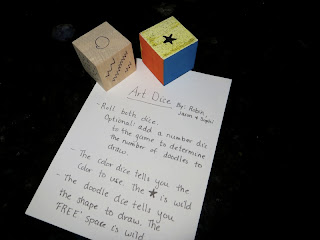 Art Dice By: Robin
Jason + 
- Roll both dice.
Optional: add a number dice
to the game to determine
the number of doodles to
draw.
- The color dice tells you the
color to use. The ★ is wild
- The doodle dice tells you
the shape to draw. The
"FREE" space is wild